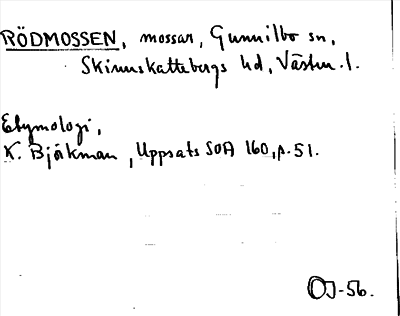 RÖDMOSSEN, mossar, Gunnilbo sn,
Skinnskattebergs hd, Västm. l.
Etymologi,
K. Björkman, Uppsats SOA 160, p. 51.
OJ-56.